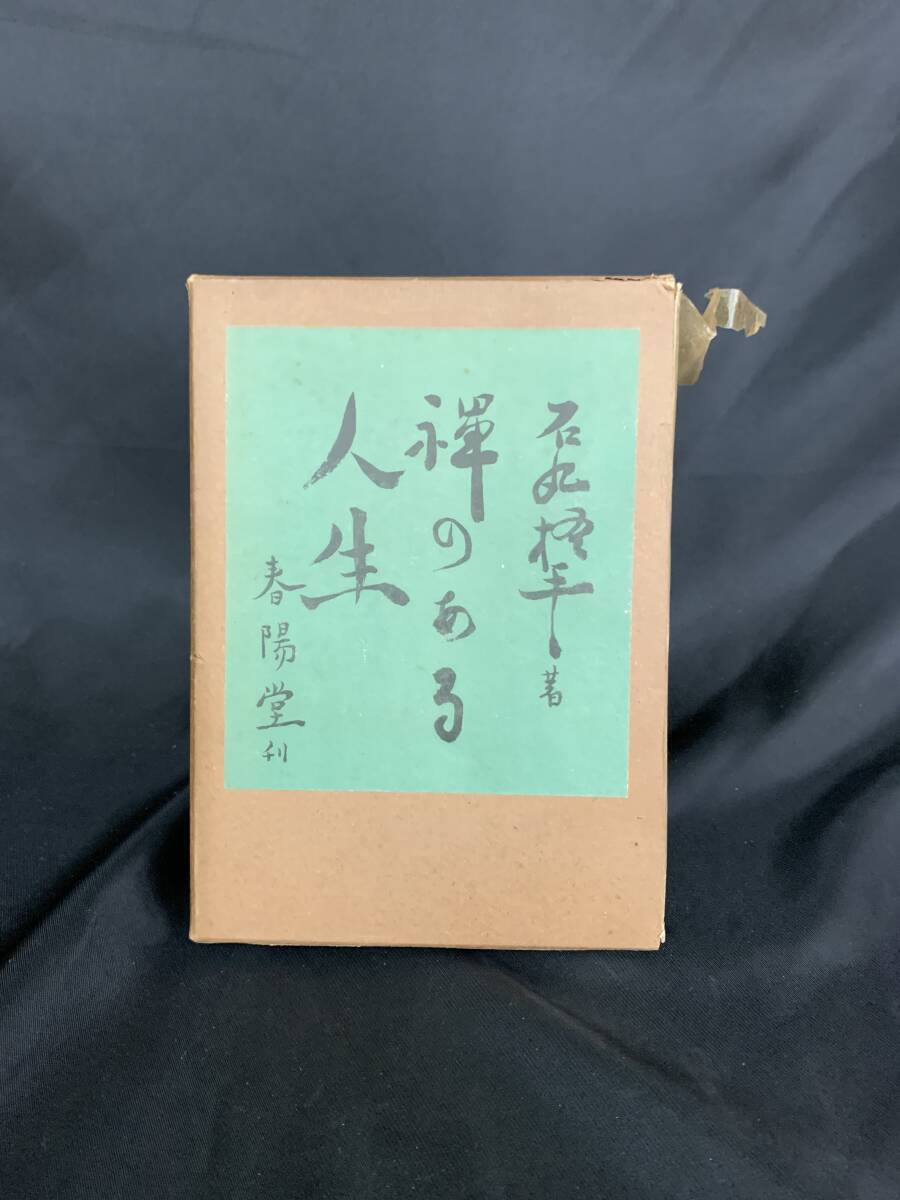 石丸梧平著
禅のある
人生
春陽堂刊